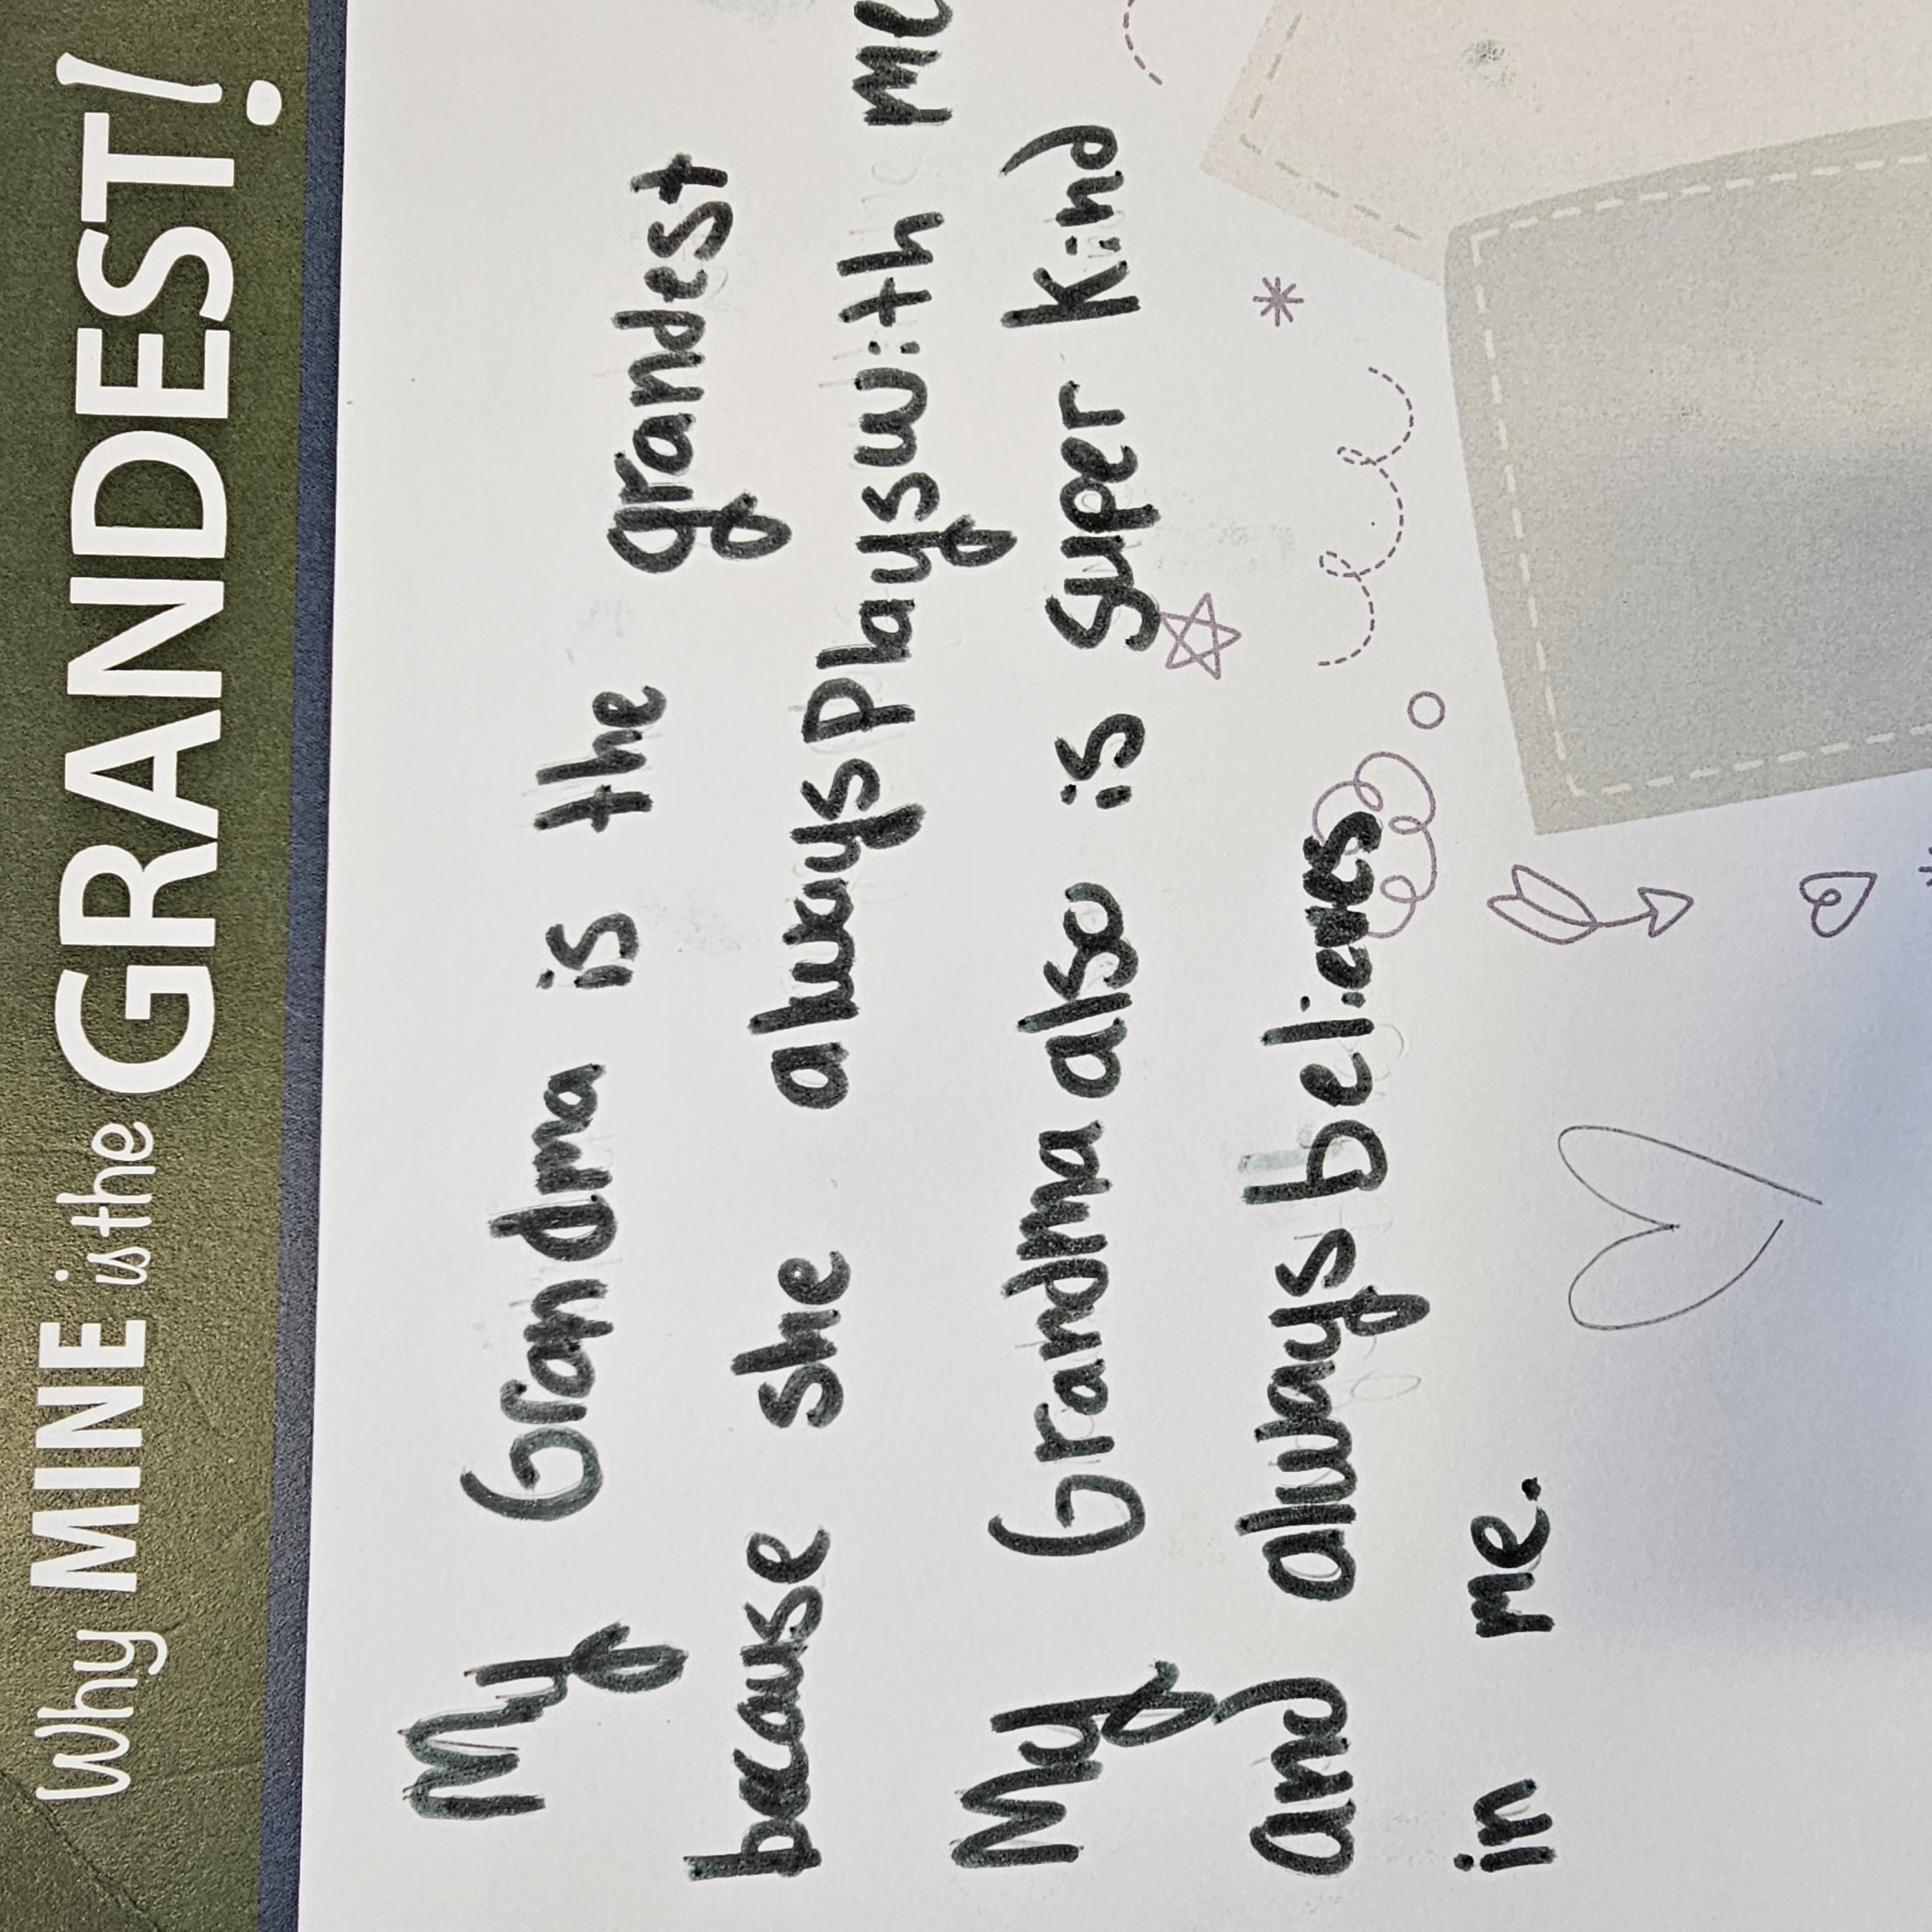 Why MINE is the GRANDEST!
My Grandma is the grandest
because she always plays with me
My Grandma also is super kind
and always believes
in me.